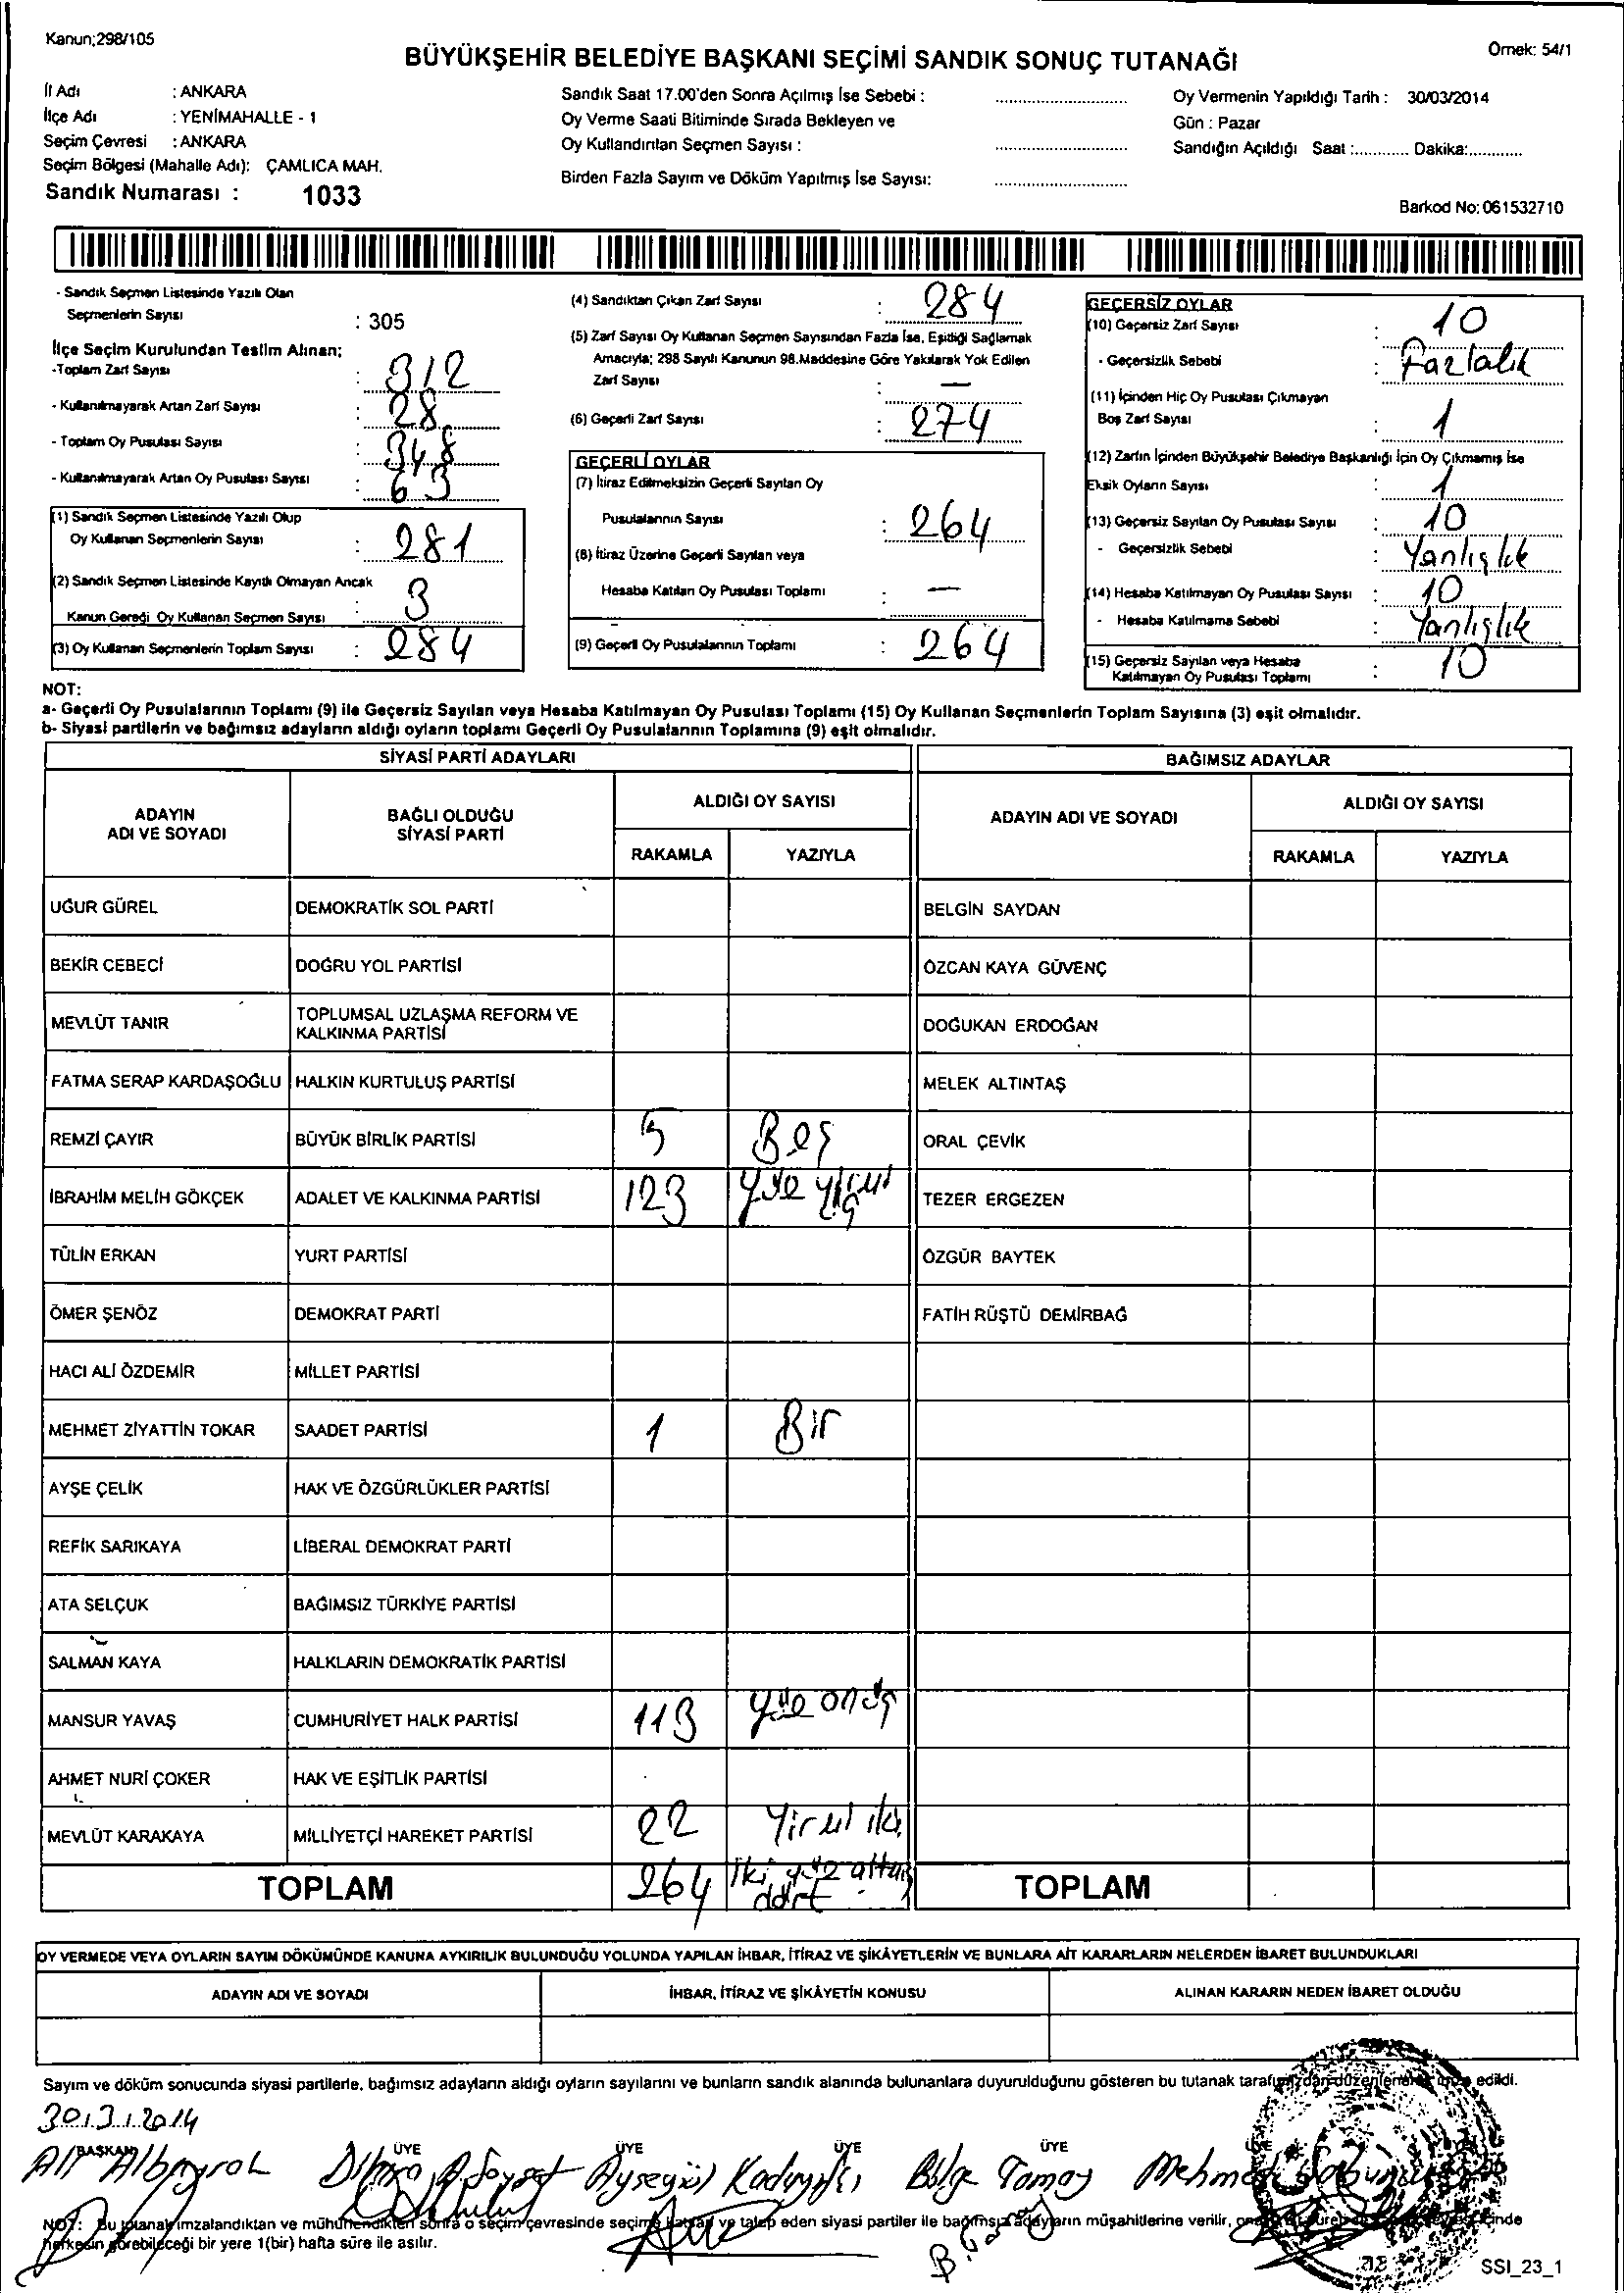 Kanun;298/105
Örnek: 54/1
BÜYÜKŞEHİR BELEDİYE BAŞKANI SEÇİMİ SANDIK SONUÇ TUTANAĞI
İl Adı : ANKARA
İlçe Adı : YENİMAHALLE - 1
Seçim Çevresi : ANKARA
Seçim Bölgesi (Mahalle Adı): ÇAMLICA MAH.
Sandık Numarası : 1033
Sandık Saat 17.00'den Sonra Açılmış İse Sebebi :
Oy Verme Saati Bitiminde Sırada Bekleyen ve
Oy Kullandırılan Seçmen Sayısı :
Birden Fazla Sayım ve Döküm Yapılmış İse Sayısı:
Oy Vermenin Yapıldığı Tarih : 30/03/2014
Gün : Pazar
Sandığın Açıldığı Saat :............ Dakika:............
Barkod No:061532710
- Sandık Seçmen Listesinde Yazılı Olan
Seçmenlerin Sayısı : 305
İlçe Seçim Kurulundan Teslim Alınan;
-Toplam Zarf Sayısı : 312
- Kullanılmayarak Artan Zarf Sayısı : 28
- Toplam Oy Pusulası Sayısı : 348
- Kullanılmayarak Artan Oy Pusulası Sayısı : 63
(1) Sandık Seçmen Listesinde Yazılı Olup
Oy Kullanan Seçmenlerin Sayısı : 281
(2) Sandık Seçmen Listesinde Kayıtlı Olmayan Ancak
Kanun Gereği Oy Kullanan Seçmen Sayısı : 3
(3) Oy Kullanan Seçmenlerin Toplam Sayısı : 284
(4) Sandıktan Çıkan Zarf Sayısı : 284
(5) Zarf Sayısı Oy Kullanan Seçmen Sayısından Fazla İse, Eşitliği Sağlamak
Amacıyla; 298 Sayılı Kanunun 98.Maddesine Göre Yakılarak Yok Edilen
Zarf Sayısı : —
(6) Geçerli Zarf Sayısı : 274
GEÇERLİ OYLAR
(7) İtiraz Edilmeksizin Geçerli Sayılan Oy
Pusulalarının Sayısı : 264
(8) İtiraz Üzerine Geçerli Sayılan veya
Hesaba Katılan Oy Pusulası Toplamı : —
(9) Geçerli Oy Pusulalarının Toplamı : 264
GEÇERSİZ OYLAR
(10) Geçersiz Zarf Sayısı : 10
- Geçersizlik Sebebi : Fazlalık
(11) İçinden Hiç Oy Pusulası Çıkmayan
Boş Zarf Sayısı : 1
(12) Zarfın İçinden Büyükşehir Belediye Başkanlığı İçin Oy Çıkmamış İse
Eksik Oyların Sayısı : 1
(13) Geçersiz Sayılan Oy Pusulası Sayısı : 10
- Geçersizlik Sebebi : Yanlışlık
(14) Hesaba Katılmayan Oy Pusulası Sayısı : 10
- Hesaba Katılmama Sebebi : Yanlışlık
(15) Geçersiz Sayılan veya Hesaba
Katılmayan Oy Pusulası Toplamı : 10
NOT:
a- Geçerli Oy Pusulalarının Toplamı (9) ile Geçersiz Sayılan veya Hesaba Katılmayan Oy Pusulası Toplamı (15) Oy Kullanan Seçmenlerin Toplam Sayısına (3) eşit olmalıdır.
b- Siyasi partilerin ve bağımsız adayların aldığı oyların toplamı Geçerli Oy Pusulalarının Toplamına (9) eşit olmalıdır.
SİYASİ PARTİ ADAYLARI BAĞIMSIZ ADAYLAR
ADAYIN ADI VE SOYADI BAĞLI OLDUĞU SİYASİ PARTİ ALDIĞI OY SAYISI ADAYIN ADI VE SOYADI ALDIĞI OY SAYISI
RAKAMLA YAZIYLA RAKAMLA YAZIYLA
UĞUR GÜREL DEMOKRATİK SOL PARTİ BELGİN SAYDAN
BEKİR CEBECİ DOĞRU YOL PARTİSİ ÖZCAN KAYA GÜVENÇ
MEVLÜT TANIR TOPLUMSAL UZLAŞMA REFORM VE KALKINMA PARTİSİ DOĞUKAN ERDOĞAN
FATMA SERAP KARDAŞOĞLU HALKIN KURTULUŞ PARTİSİ MELEK ALTINTAŞ
REMZİ ÇAYIR BÜYÜK BİRLİK PARTİSİ 5 Beş ORAL ÇEVİK
İBRAHİM MELİH GÖKÇEK ADALET VE KALKINMA PARTİSİ 123 TEZER ERGEZEN
TÜLİN ERKAN YURT PARTİSİ ÖZGÜR BAYTEK
ÖMER ŞENÖZ DEMOKRAT PARTİ FATİH RÜŞTÜ DEMİRBAĞ
HACI ALİ ÖZDEMİR MİLLET PARTİSİ
MEHMET ZİYATTİN TOKAR SAADET PARTİSİ 1 Bir
AYŞE ÇELİK HAK VE ÖZGÜRLÜKLER PARTİSİ
REFİK SARIKAYA LİBERAL DEMOKRAT PARTİ
ATA SELÇUK BAĞIMSIZ TÜRKİYE PARTİSİ
SALMAN KAYA HALKLARIN DEMOKRATİK PARTİSİ
MANSUR YAVAŞ CUMHURİYET HALK PARTİSİ 113 Yüz onüç
AHMET NURİ ÇOKER HAK VE EŞİTLİK PARTİSİ
MEVLÜT KARAKAYA MİLLİYETÇİ HAREKET PARTİSİ 22 Yirmi iki
TOPLAM 264 İki yüz altmış dört TOPLAM
OY VERMEDE VEYA OYLARIN SAYIM DÖKÜMÜNDE KANUNA AYKIRILIK BULUNDUĞU YOLUNDA YAPILAN İHBAR, İTİRAZ VE ŞİKÂYETLERİN VE BUNLARA AİT KARARLARIN NELERDEN İBARET BULUNDUKLARI
ADAYIN ADI VE SOYADI İHBAR, İTİRAZ VE ŞİKÂYETİN KONUSU ALINAN KARARIN NEDEN İBARET OLDUĞU
Sayım ve döküm sonucunda siyasi partilerle, bağımsız adayların aldığı oyların sayılarını ve bunların sandık alanında bulunanlara duyurulduğunu gösteren bu tutanak tarafımızdan düzenlenerek imza edildi.
30.3.2014
BAŞKAN ÜYE ÜYE ÜYE ÜYE ÜYE
Ali Albayrak Ayşegül Bilge Tamay Mehmet
NOT: Bu tutanak imzalandıktan ve mühürlendikten sonra o seçim çevresinde seçime katılan ve talep eden siyasi partiler ile bağımsız adayların müşahitlerine verilir, içinde
herkesin görebileceği bir yere 1(bir) hafta süre ile asılır.
SSI_23_1